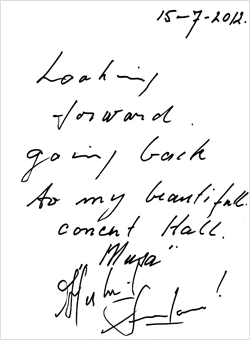 15-7-2012.
Looking
forward.
going back
to my beautifull
concert Hall.
"Musa" !